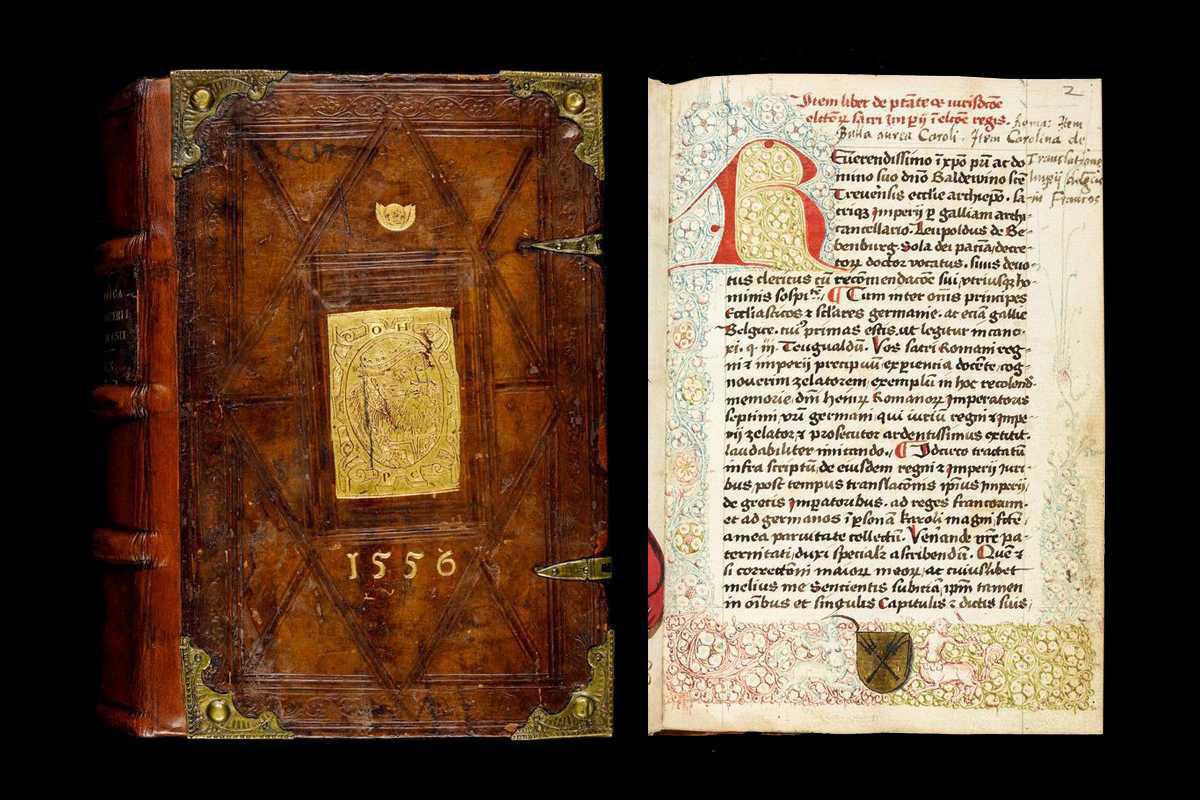 O H
P
1556
2
Item liber de ptāte & iurisdcōe
elctoꝝ sacri Impij ī elcōe regis.
Bulla aurea Caroli. Item Carolina de
Translatione
Impij
in Francos
Reuerendissimo ī xpo pri ac do
mino suo dno Baldewino scē
Treuensis ecclie archiepo. sa
criqꝫ Imperij p galliam archi
cancellario. Leupoldus de Be-
benburg. Sola dei paciā, decre-
torꝝ doctor vocatus. siuus deuo-
tus clericus cū recōmendacōe sui, vtriusqꝫ ho-
minis sospitē. Cum inter om̄is principes
Ecclīasticos & sclares germanie. ac eciā gallie
Belgice. tuꝰ primas estis, ut legitur in cano.
xi. q. iij. Teugualdū. Vos sacri Romani reg-
ni & imperij precipuū, experiencia docēte, cog-
nouerim zelatorem, exemplū in hoc recolende
memorie, dm̄ henrici Romanorꝝ Imperatoris
septimi, vrī germani qui iuriū regni & impe-
rij zelator, & prosecutor ardentissimus extitit.
laudabiliter imitando. Idcirco tractatū
infra scriptū, de eiusdem regni & imperij iuri-
bus, post tempus translacōnis ip̄ius imperij,
de grecis imperatoribus. ad reges francorum.
et ad germanos ī ꝑsona karoli magni fctē.
a mea paruitate collectū. Venande vrē pa-
ternitati, duxi specialr ascribendū. Quē &
si correctōni maiorꝝ meorꝝ, ac cuiuslibet
melius me sencientis subiciā, ip̄m tamen
in oībus et singulis Capitulis & dictis suis,